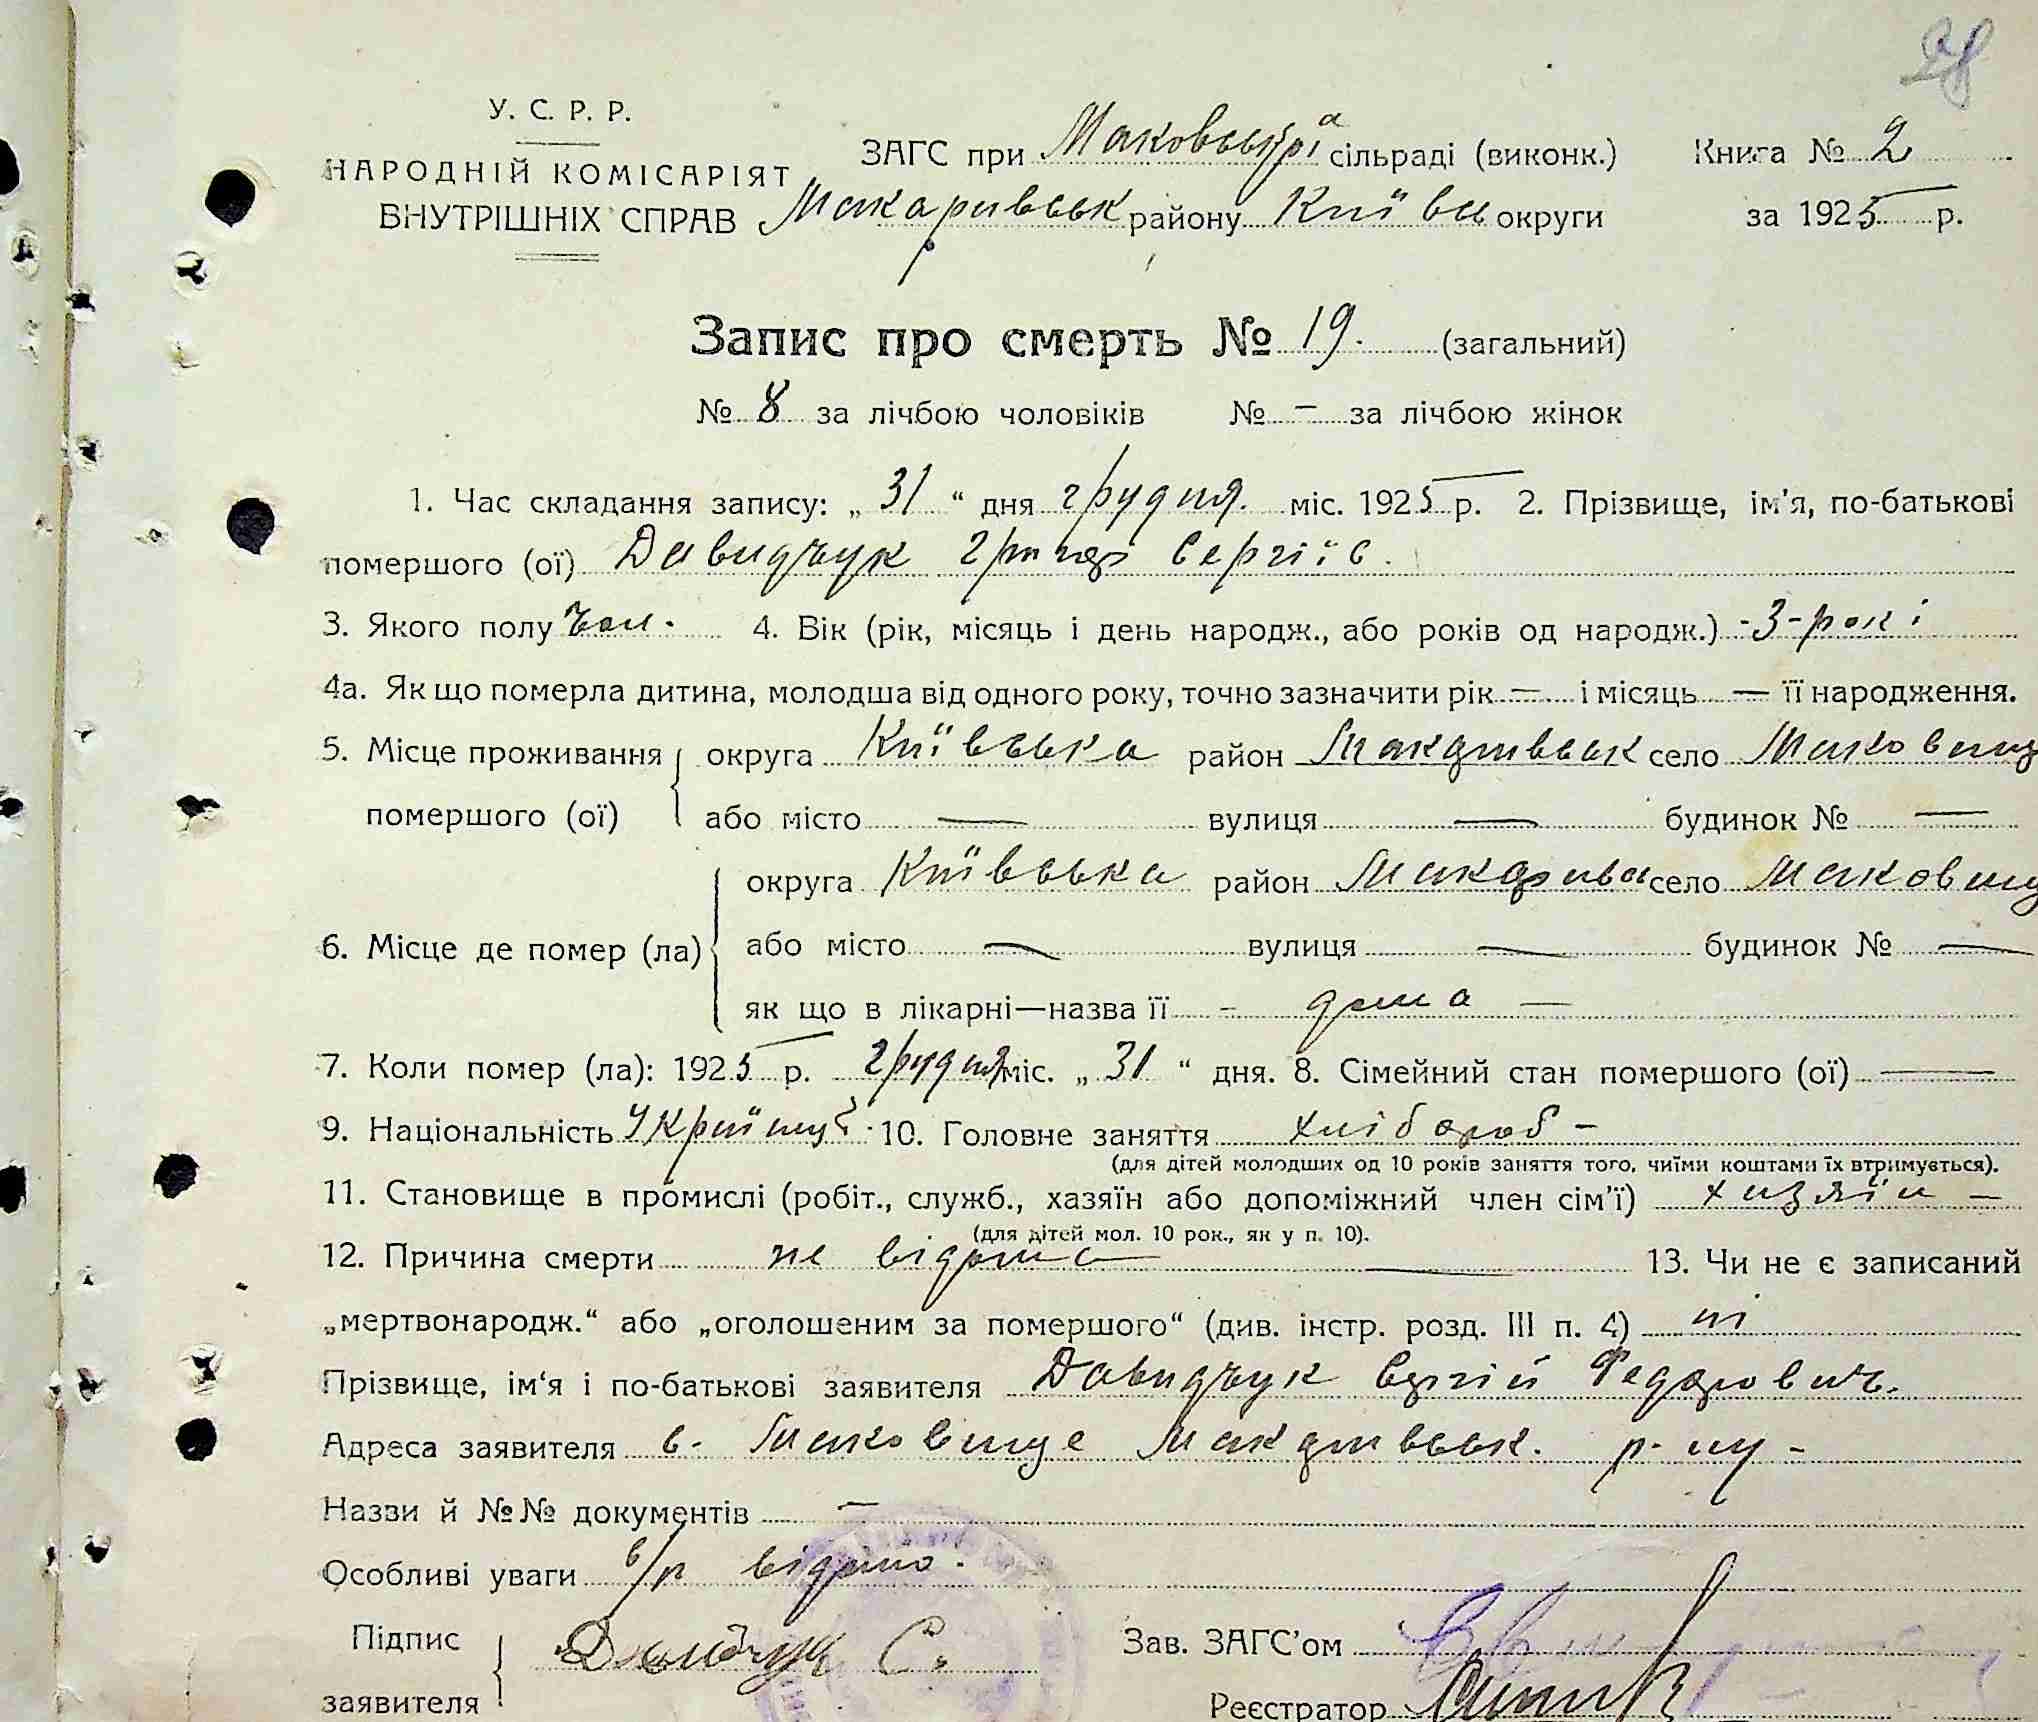 28
У. С. Р. Р.
НАРОДНІЙ КОМІСАРІЯТ
ВНУТРІШНІХ СПРАВ
ЗАГС при сільраді (виконк.) Книга № 2
Макаривськ району Київс округи за 1925 р.
Запис про смерть № 19. (загальний)
№ 8 за лічбою чоловіків № — за лічбою жінок
1. Час складання запису: „31“ дня грудня міс. 1925 р. 2. Прізвище, ім'я, по-батькові
помершого (ої) Давидчук Григорі Сергіїв.
3. Якого полу чол. 4. Вік (рік, місяць і день народж., або років од народж.) -3-рокі
4а. Як що померла дитина, молодша від одного року, точно зазначити рік — і місяць — її народження.
5. Місце проживання помершого (ої) округа Київська район Макаривськ село Маковищ
або місто — вулиця — будинок № —
6. Місце де помер (ла) округа Київська район Макаривс село Маковищ
або місто — вулиця — будинок № —
як що в лікарні—назва її - дома —
7. Коли помер (ла): 1925 р. грудня міс. „31“ дня. 8. Сімейний стан помершого (ої) —
9. Національність 10. Головне заняття хлібороб -
(для дітей молодших од 10 років заняття того, чиїми коштами їх втримується).
11. Становище в промислі (робіт., служб., хазяїн або допоміжний член сім'ї) хазяїн —
(для дітей мол. 10 рок., як у п. 10).
12. Причина смерти не відома — 13. Чи не є записаний
„мертвонародж.“ або „оголошеним за помершого“ (див. інстр. розд. III п. 4) ні
Прізвище, ім'я і по-батькові заявителя Давидчук Сергій Федорович.
Адреса заявителя с. Маковище Макаривськ. р-ну -
Назви й №№ документів —
Особливі уваги в/п відомо.
Підпис заявителя Давидчук С.
Зав. ЗАГС'ом
Реєстратор